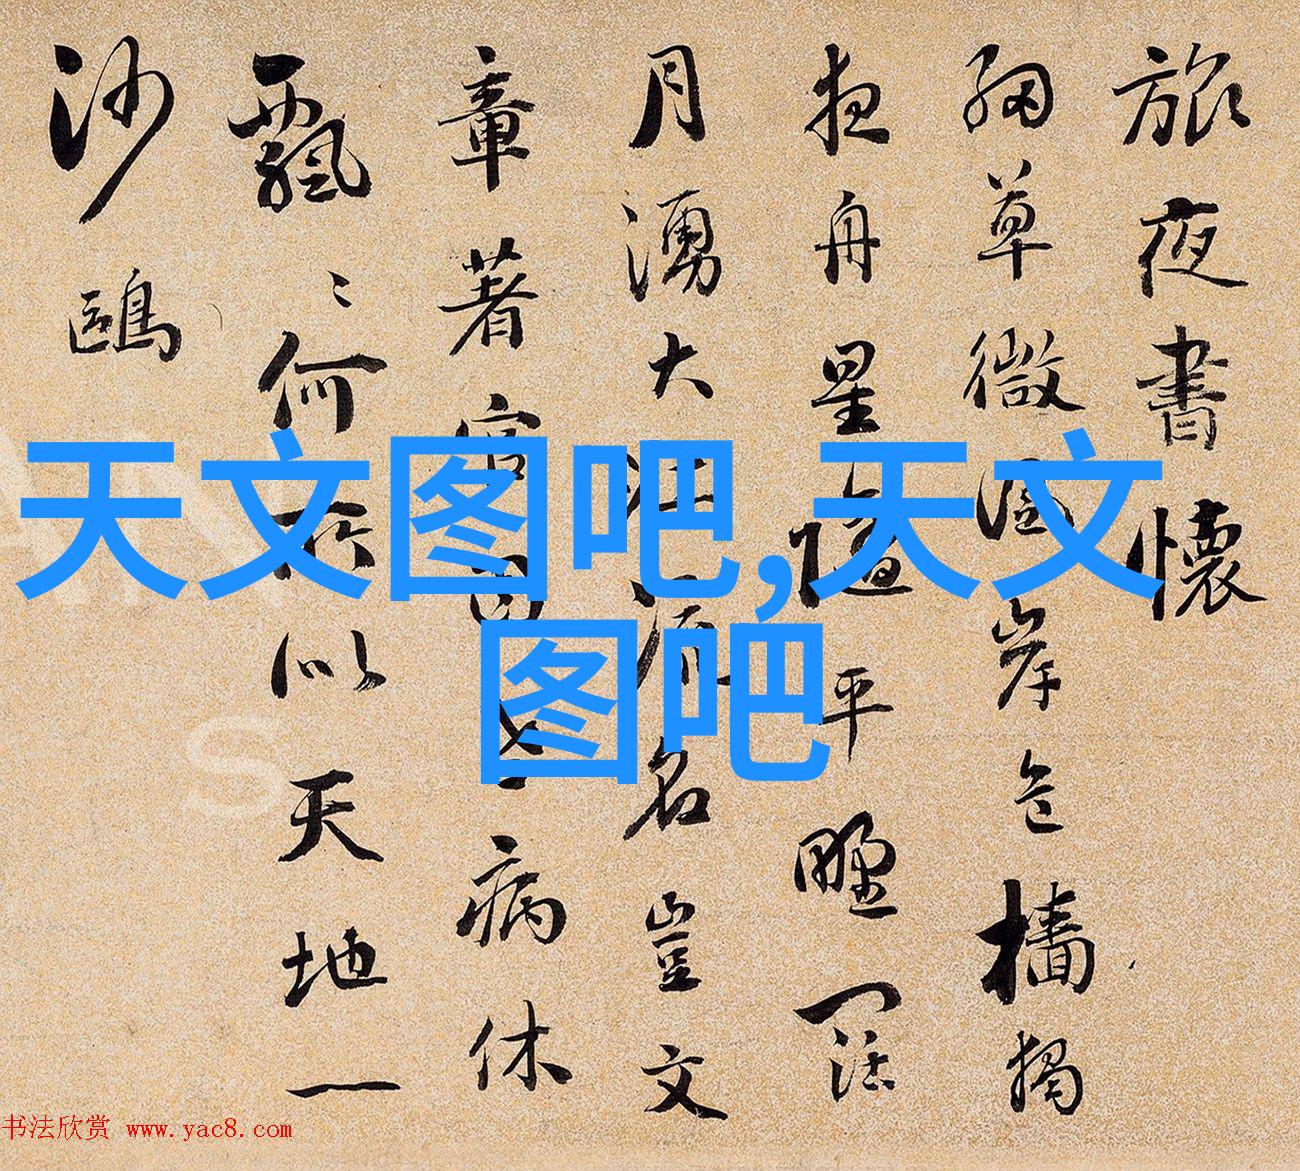 旅夜書懷
細草微風岸危檣獨
夜舟星隨平野闊
月湧大江流名豈文
章著官因老病休
飄〻何所似天地一
沙鷗
天文图吧,天文
图吧
书法欣赏 www.yac8.com